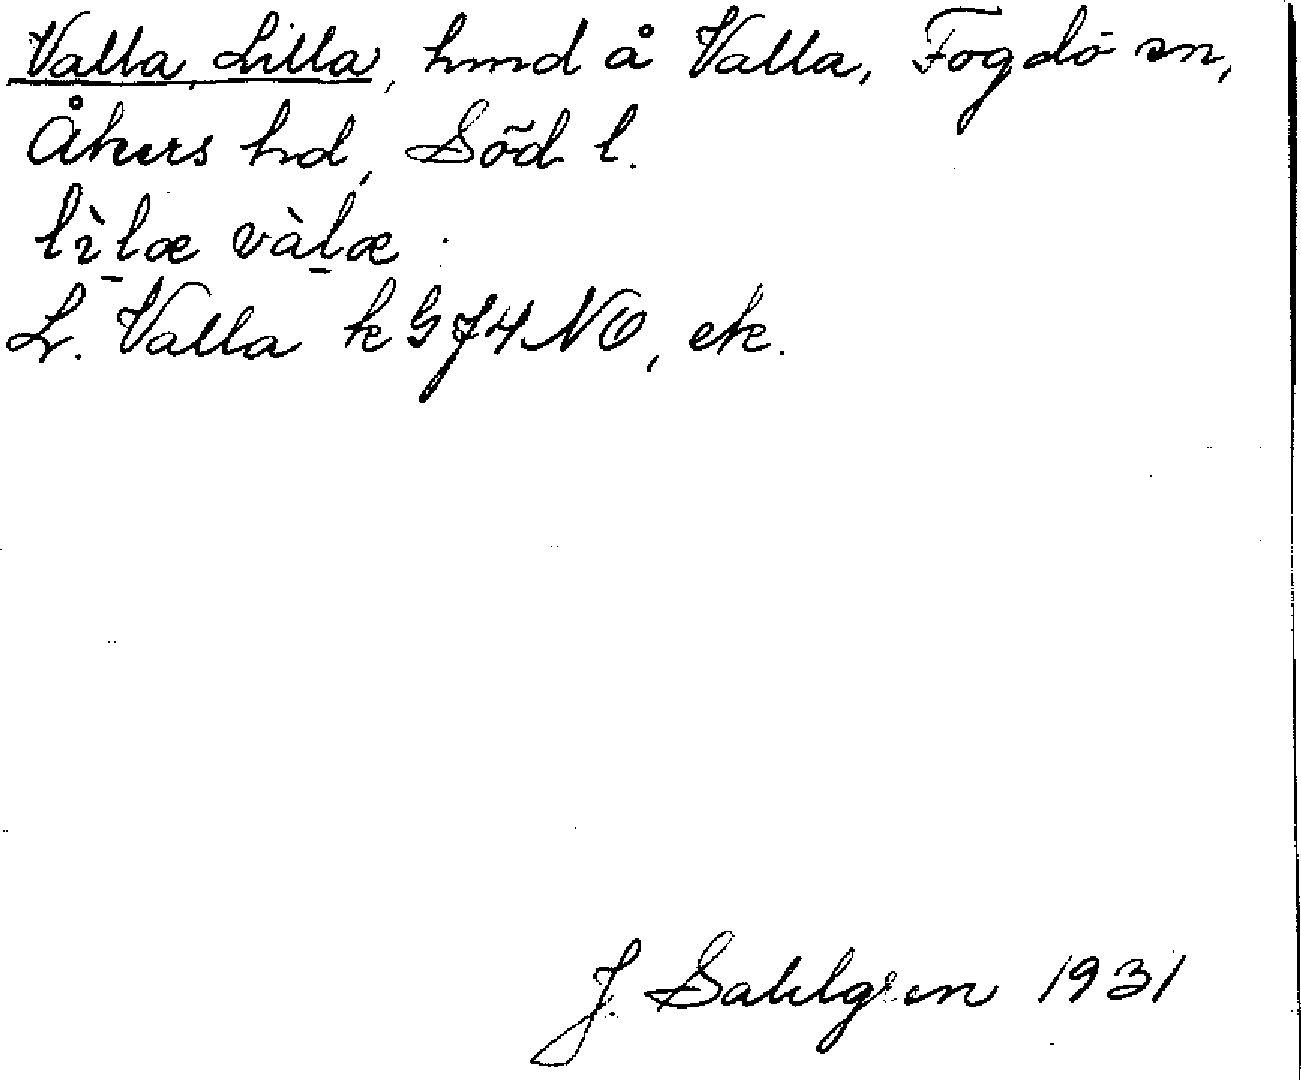 Valla, Lilla, hmd å Valla, Fogdö sn,
Åkers hd, Söd l.
lìl̠æ vàl̠æ
L. Valla k GJ4NO, ek.
J. Sahlgren 1931